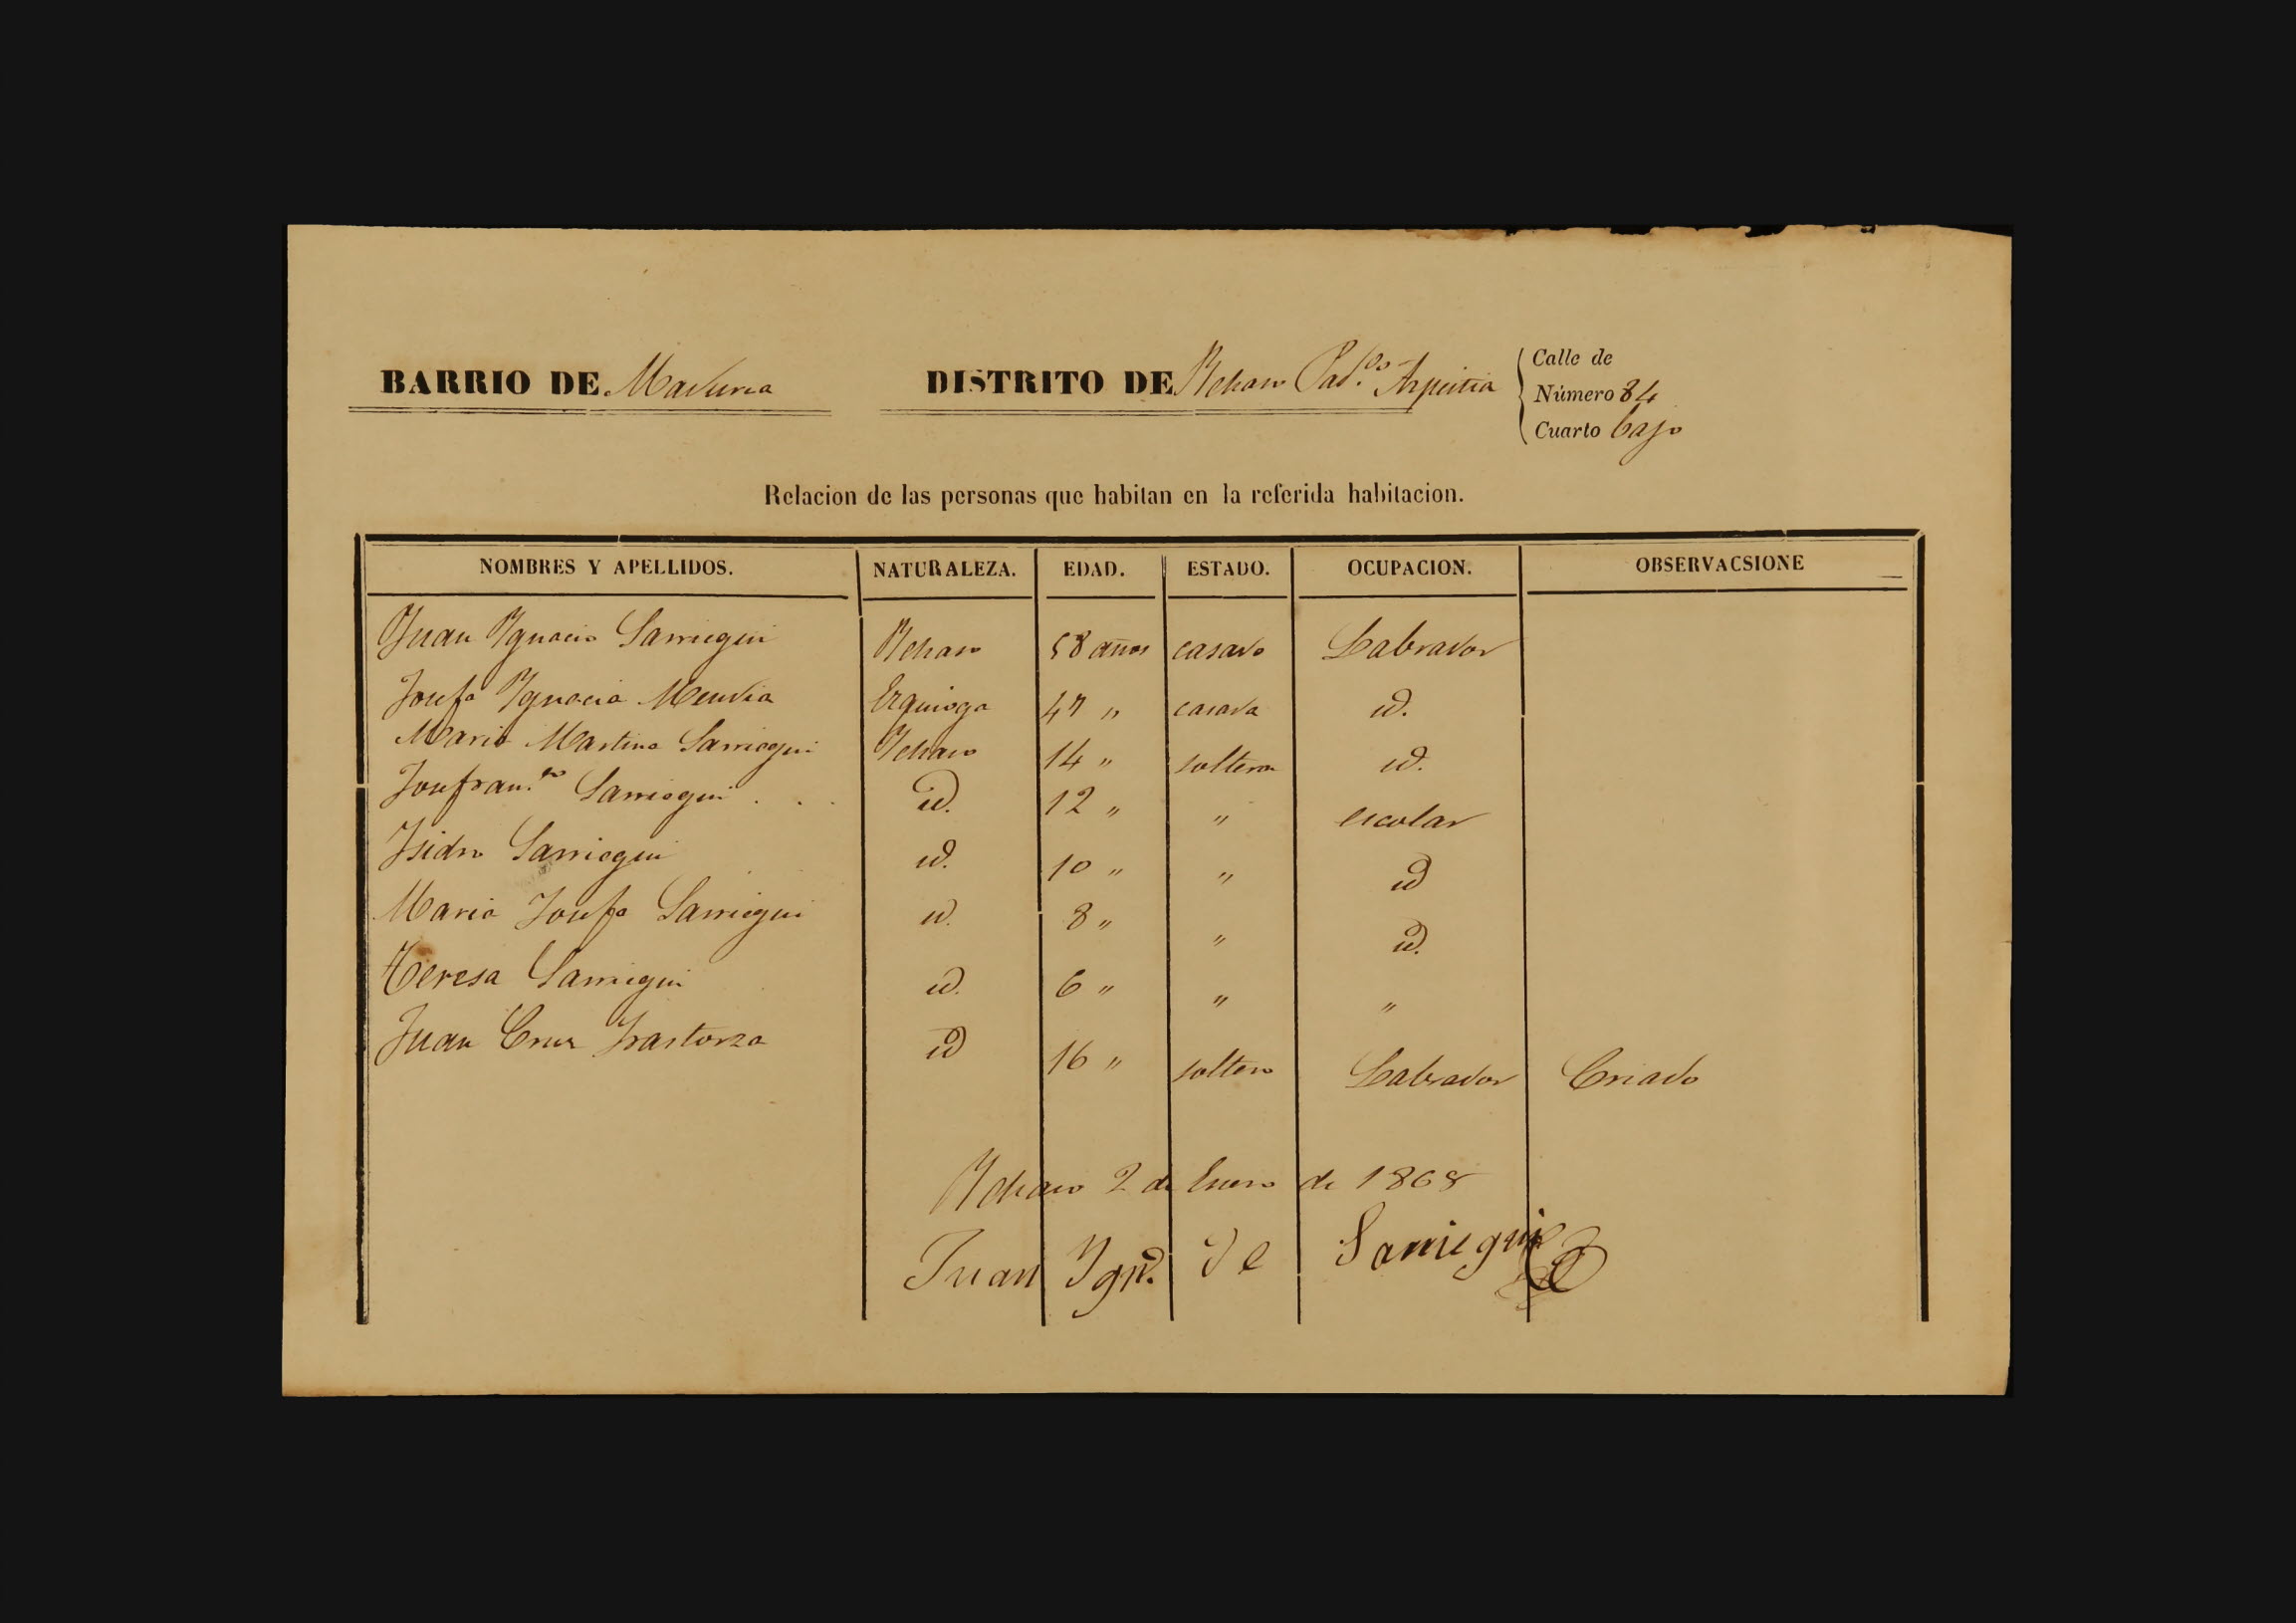 BARRIO DE Maduria DISTRITO DE Ychaso Part.do Azpeitia Calle de
Número 84
Cuarto bajo
Relacion de las personas que habitan en la referida habitacion.
NOMBRES Y APELLIDOS. NATURALEZA. EDAD. ESTADO. OCUPACION. OBSERVACSIONE
Juan Ygnacio Sarriegui Ychaso 58 años casado Labrador
Josefa Ygnacia Mendia Ezquioga 47 " casada id.
Maria Martina Sarriegui Ychaso 14 " soltera id.
Josefran.co Sarriegui . . . id. 12 " " escolar
Isidro Sarriegui id. 10 " " id
Maria Josefa Sarriegui id. 8 " " id.
Teresa Sarriegui id. 6 " " "
Juan Cruz Irastorza id 16 " soltero Labrador Criado
Ychaso 2 de Enero de 1868
Juan Ygn.o de Sarriegui